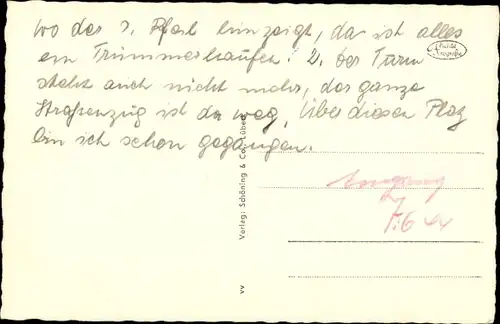 wo der 1. Pfeil hinzeigt, da ist alles
ein Trümmerhaufen! 2. der Turm
steht auch nicht mehr, der ganze
Straßenzug ist da weg, Über diesen Platz
bin ich schon gegangen.
Verlag: Schöning & Co., Lübeck
vv